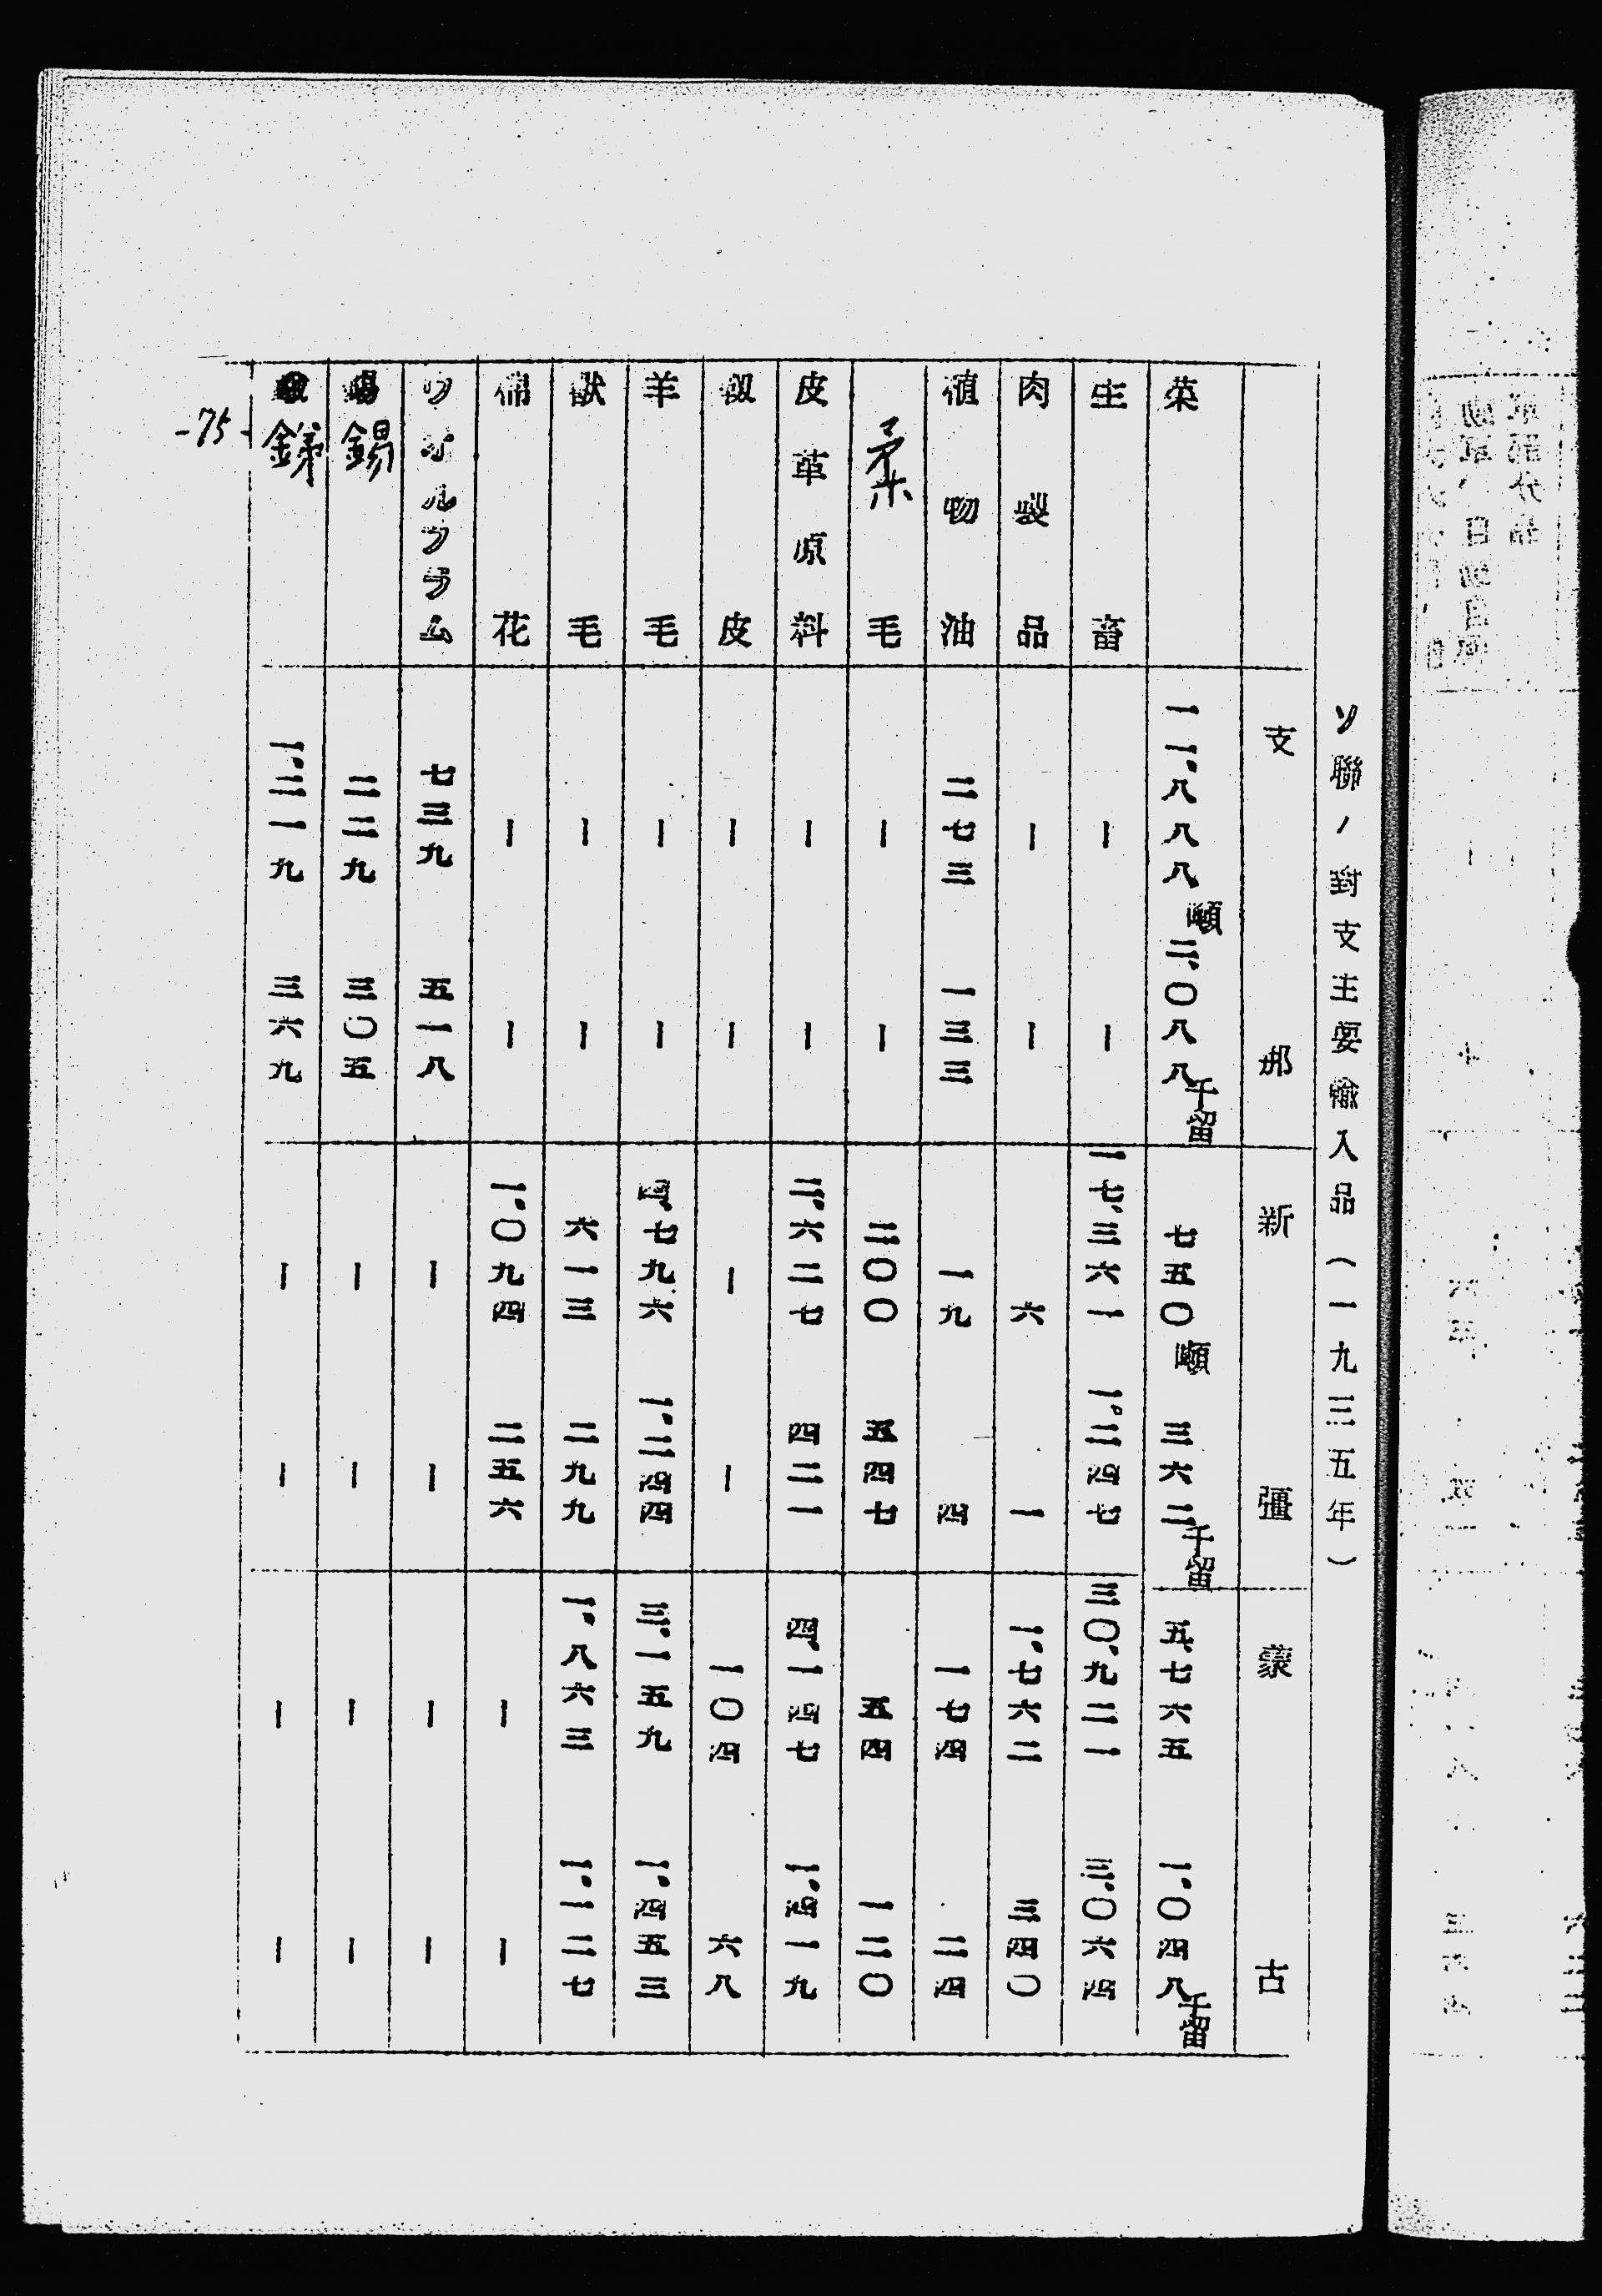 ソ聯ノ對支主要輸入品(一九三五年)
支那 新疆 蒙古
茶 一一.八八八噸 二.〇八八千留 七五〇噸 三六二千留 五.七六五 一.〇四八千留
生畜 ー ー 一七.三六一 一.二四七 三〇.九二一 三.〇六四
肉製品 ー ー 六 一 一.七六二 三四〇
植物油 二七三 一三三 一九 四 一七四 二四
柔毛 ー ー 三〇〇 五四七 五四 一二〇
皮革原料 ー ー 二.六二七 四二一 四.一四七 一.四一九
皮 ー ー ー ー 一〇四 六八
羊毛 ー ー 四.七九六 一.二四四 三.一五九 一.四五三
獣毛 ー ー 六一三 二九九 一.八六三 一.一二七
棉花 ー ー 一.〇九四 二五六 ー ー
ウオルフラム 七三九 五一八 ー ー ー ー
錫 二二九 三〇五 ー ー ー ー
銻 一.二一九 三六九 ー ー ー ー
-75-